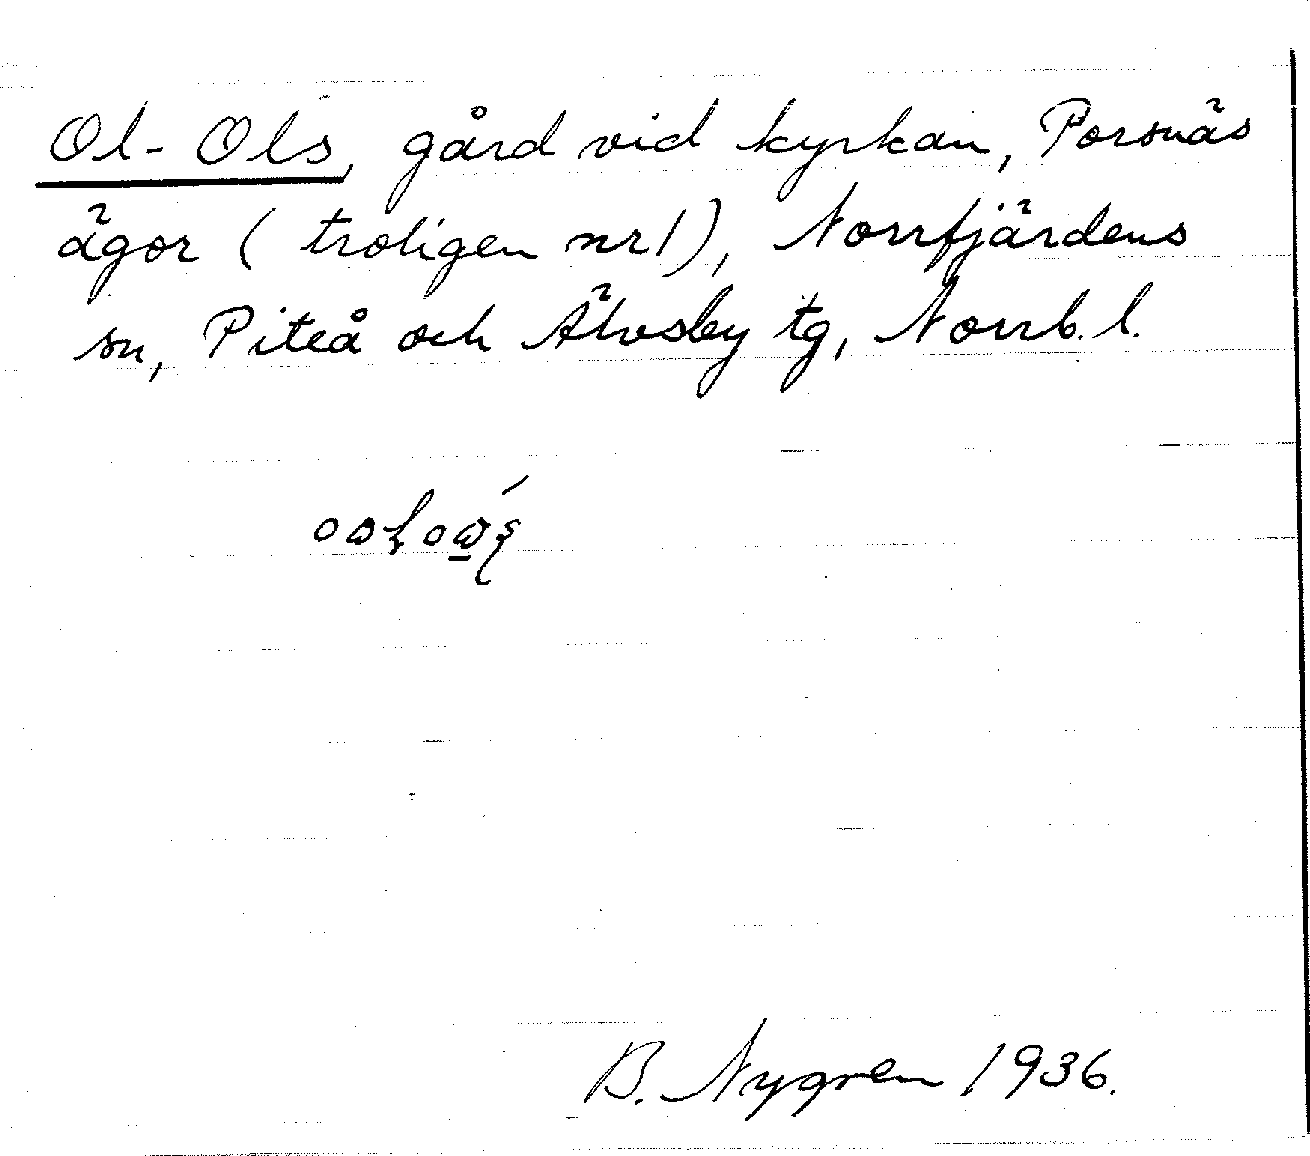 Ol-Ols, gård vid kyrkan, Porsnäs
ägor (troligen nr 1), Norrfjärdens
sn, Piteå och Älvsby tg, Norrb. l.
B. Nygren 1936.